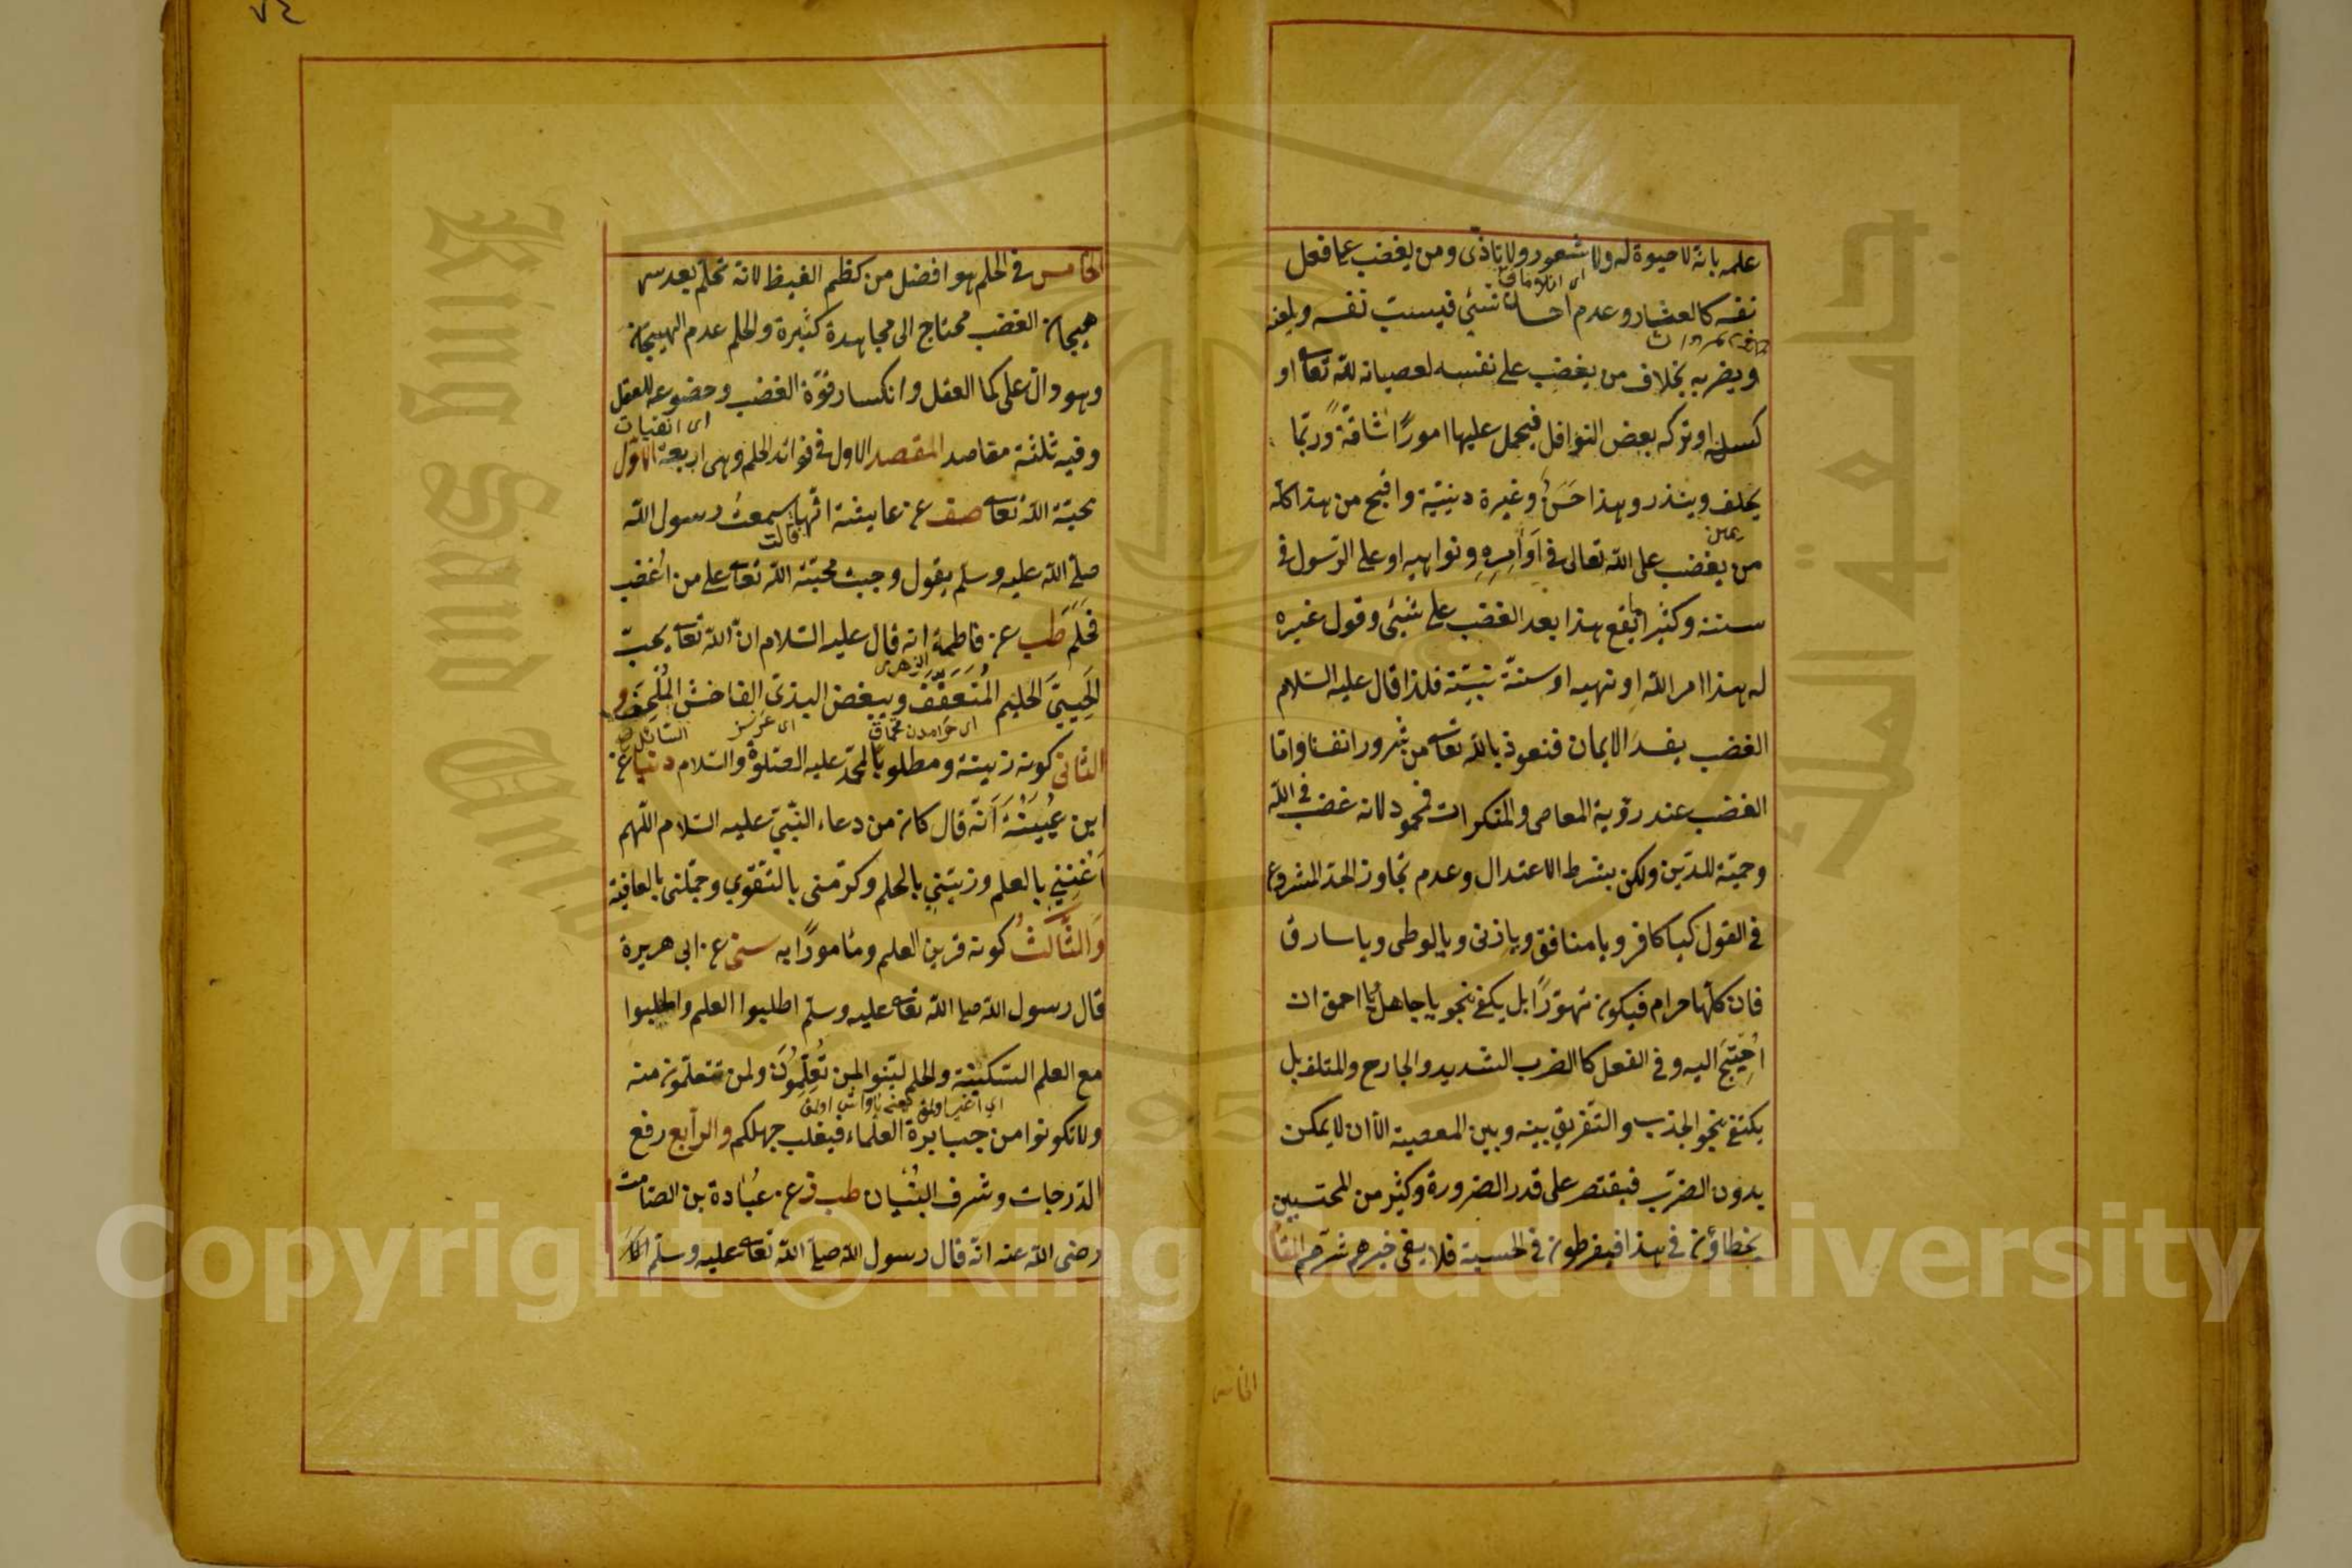 علمه بانه لا حيوة له ولا شعور ولا تأذى ومن يغضب عما فعل
نفسه كالعثار وعدم احسان شئ فيسب نفسه ويلعنه
ويضربه بخلاف من يغضب على نفسه لعصيانه لله تعا او
كسله او تركه بعض النوافل فيحمل عليها امورًا شاقة وربّما
يحلف وينذر وهذا حسن وغيرة دينيّة واقبح من هذا كله
يمين
من يغضب على الله تعالى فى اوامره ونواهيه او على الرسول فى
سننه وكثيرا ما يقع هذا بعد الغضب على شئ وقول غيره
له هذا امر الله او نهيه او سنّة نبيّه فلذا قال عليه السّلام
الغضب يفسد الايمان فنعوذ بالله تعا من شرور انفسنا وامّا
الغضب عند رؤية المعاصى والمنكرات فمحمود لانه غضب فى الله
وحميّة للدّين ولكن بشرط الاعتدال وعدم تجاوز الحدّ المشروع
فى القول كيا كافر ويا منافق ويا زنى ويا لوطى ويا سارق
فان كلّها حرام فيكون تهوّرًا بل يكفى نحو يا جاهل يا احمق ان
اُحْتِيجَ اليه وفى الفعل كالضرب الشديد والجارح والمتلف بل
يكتفى بنحو الجذب والتّفريق بينه وبين المعصية الّا ان لا يمكن
بدون الضرب فيقتصر على قدر الضرورة وكثير من المحتسبين
يخطاؤن فى هذا فيفرطون فى الحسبة فلا يفى خيرهم شرّهم المقا
الخامس
٧٤
الخامس فى الحلم هو افضل من كظم الغيظ لانه تحلّم بعد
هيجان الغضب محتاج الى مجاهدة كثيرة والحلم عدم الهيجان
وهو دالّ على كمال العقل وانكسار قوّة الغضب وخضوعه للعقل
وفيه ثلثة مقاصد المقصد الاول فى فوائد الحلم وهى اربعة الاوّل
محبّة الله تعا صف عن عايشة انّها سمعت رسول الله
قالت
صلّى الله عليه وسلّم يقول وجبت محبّة الله تعا على من اُغضب
فحَلُمَ طب عن فاطمة انه قال عليه السّلام انّ الله تعا يحبّ
الزهرى
الحَيِيَّ الحليم المُتَعَفِّفَ ويبغض البذىّ الفاحش المُلْحِفَ
السائل
الثّانى كونه زينة ومطلوبًا لمحمّد عليه الصّلوة والسّلام دنيا عن
ابن عُيَيْنَةَ اَنّه قال كان من دعاء النّبىّ عليه السّلام اللّهم
اَغْنِنِى بالعلم وزيّنى بالحلم وكرّمنى بالتقوى وجمّلنى بالعافية
وَالثَّالِثُ كونه قرين العلم ومأمورًا به سنى عن ابى هريرة
قال رسول الله صلى الله تعا عليه وسلّم اطلبوا العلم واطلبوا
مع العلم السّكينة والحلم لينوا لمن تُعَلِّمُونَ ولمن تتعلّمون منه
ولا تكونوا من جبابرة العلماء فيغلب جهلكم والرابع رفع
الدّرجات وشرف البُنْيان طب ز عن عُبَادة بن الصّامت
رضى الله عنه انّه قال رسول الله صلّى الله تعا عليه وسلّم الا
Copyright © King Saud University
King Saud University
جامعة الملك